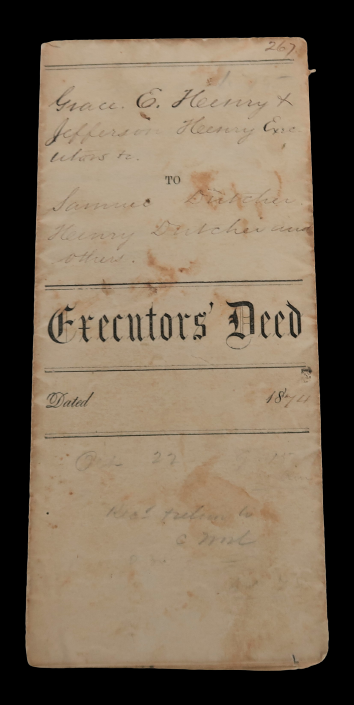 267
Grace. E. Henry &
Jefferson Henry Exec
utors &c.
TO
Samuel Dutcher
Henry Dutcher and
others.
Executors' Deed
Dated 187
22